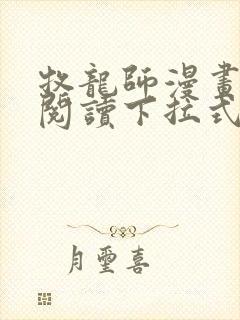 牧龍師漫畫
閱讀下拉式
月璽喜